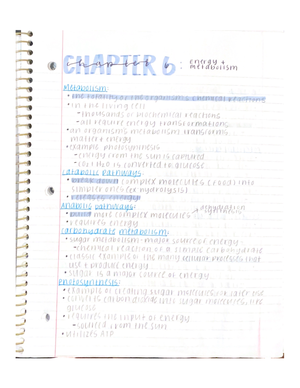 CHAPTER 6: energy +
metabolism
Metabolism:
• the totality of an organism's chemical reactions
• in the living cell
• thousands of biochemical reactions
• all require energy transformations
• an organism's metabolism transforms
matter + energy
• example photosynthesis
• energy from the sun is captured
• CO2 + H2O is converted to glucose
Catabolic pathways:
• complex molecules (food) into
simpler ones (ex hydrolysis)
• releases energy
Anabolic pathways:
• build more complex molecules
• requires energy
Carbohydrate metabolism:
• sugar metabolism - major source of energy
• chemical reactions of a simple carbohydrate
• classic example of the many cellular processes that
use + produce energy
• sugar is a major source of energy
Photosynthesis:
• example of creating sugar molecules
• sugar molecules, like
glucose
• requires the input of energy
• sourced from the sun
• utilizes ATP